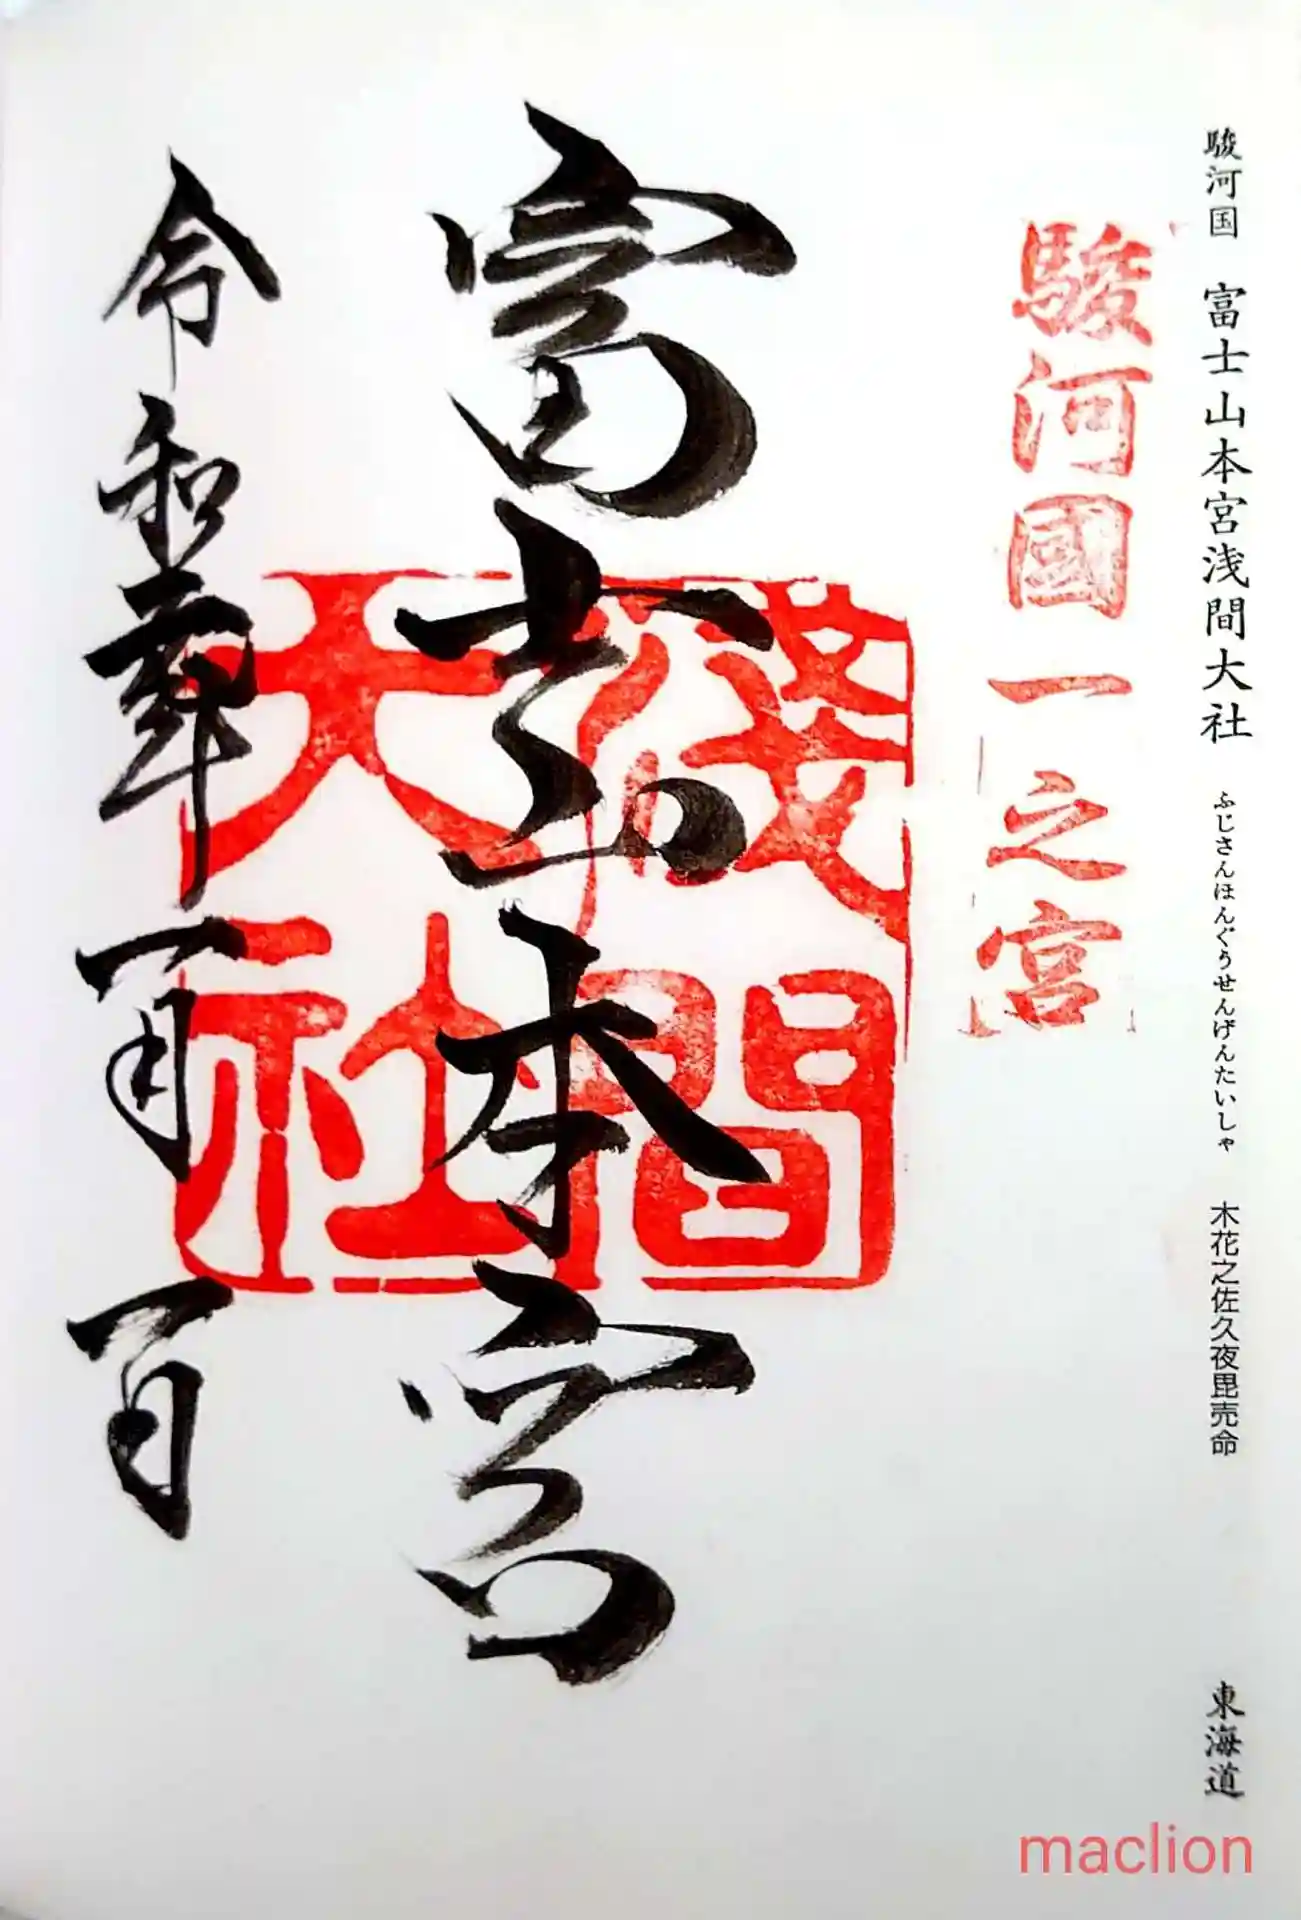 駿河国 富士山本宮浅間大社 ふじさんほんぐうせんげんたいしゃ 木花之佐久夜毘売命 東海道
駿河國一之宮
富士山本宮
淺間大社
令和二年一月一日
maclion